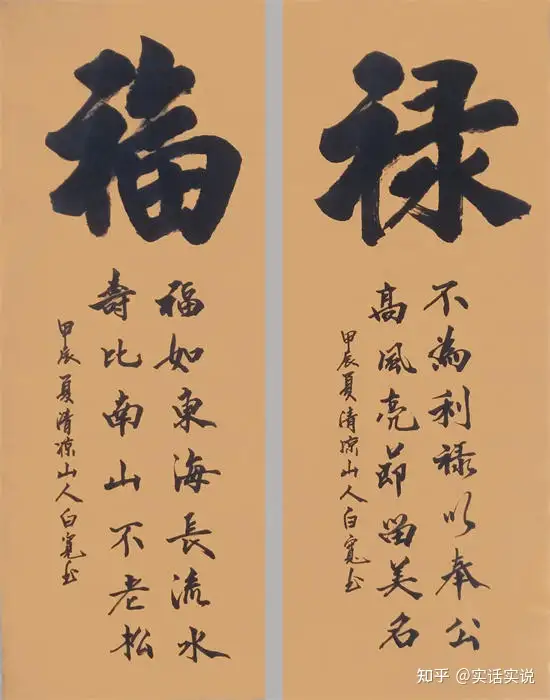 福
福如東海長流水
壽比南山不老松
甲辰夏清凉山人白寬书
禄
不為利禄以奉公
高風亮節留美名
甲辰夏清凉山人白寬书
知乎 @实话实说